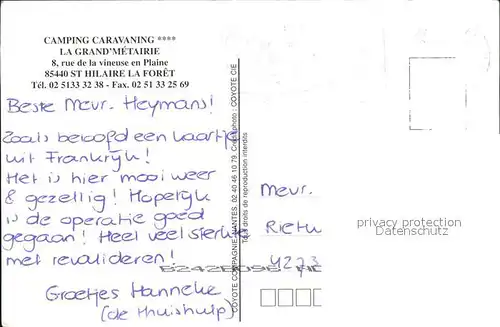 CAMPING CARAVANING ****
LA GRAND'MÉTAIRIE
8, rue de la vineuse en Plaine
85440 ST HILAIRE LA FORÊT
Tél. 02 5133 32 38 - Fax. 02 51 33 25 69
Beste Mevr. Heymans!
Zoals beloofd een kaartje
uit Frankrijk!
Het is hier mooi weer
& gezellig! Hopelijk
is de operatie goed
gegaan! Heel veel sterkte
met revalideren!
Groetjes Hanneke
(de thuishulp)
COYOTE COMPAGNIE NANTES. 02 40 46 10 79. Crédit photo : COYOTE CIE
Tous droits de reproduction interdits
Mevr.
Rietu
4273
privacy protection
Datenschutz